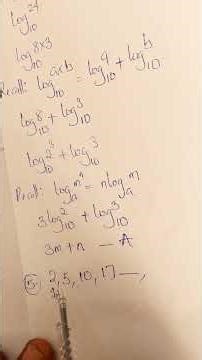 log₁₀24
log₁₀8x3
Recall: log₁₀axb = log₁₀a + log₁₀b
log₁₀8 + log₁₀3
log₁₀2³ + log₁₀3
Recall: logₐmⁿ = nlogₐm
3log₁₀2 + log₁₀3
3m+n — A
5. 2, 5, 10, 17 —,